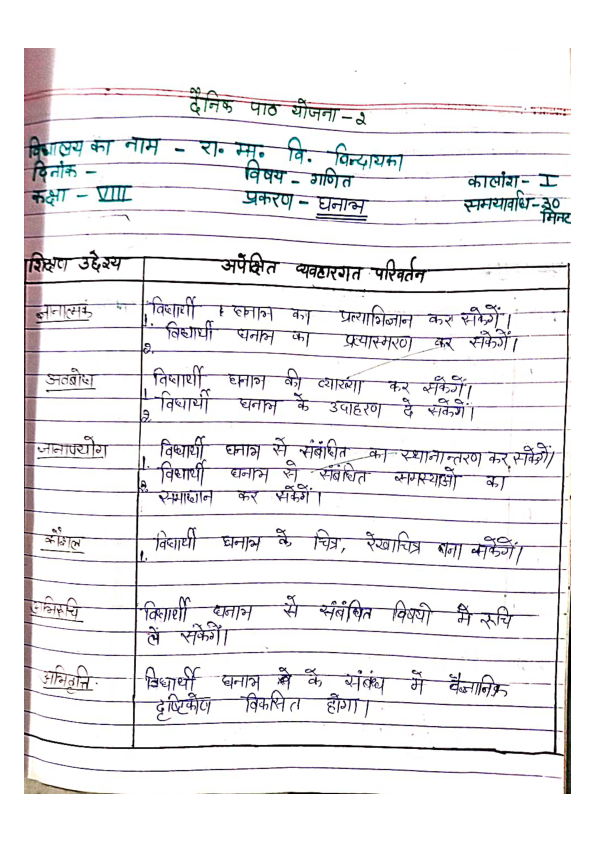 दैनिक पाठ योजना - २
विद्यालय का नाम - रा. मा. वि. विन्दायका
दिनांक - विषय - गणित कालांश - I
कक्षा - VIII प्रकरण - घनाभ समयावधि - 30 मिनट
शिक्षण उद्देश्य अपेक्षित व्यवहारगत परिवर्तन
ज्ञानात्मक 1. विद्यार्थी घनाभ का प्रत्याभिज्ञान कर सकेगें।
2. विद्यार्थी घनाभ का प्रत्यास्मरण कर सकेगें।
अवबोध 1. विद्यार्थी घनाभ की व्याख्या कर सकेगें।
2. विद्यार्थी घनाभ के उदाहरण दे सकेगें।
ज्ञानोपयोग 1. विद्यार्थी घनाभ से संबंधित का स्थानान्तरण कर सकेगें।
2. विद्यार्थी घनाभ से संबंधित समस्याओं का
समाधान कर सकेगें।
कौशल 1. विद्यार्थी घनाभ के चित्र, रेखाचित्र बना सकेगें।
अभिरूचि विद्यार्थी घनाभ से संबंधित विषयो में रूचि
लें सकेगें।
अभिवृत्ति विद्यार्थी घनाभ के संबंध में वैज्ञानिक
दृष्टिकोण विकसित होगा।